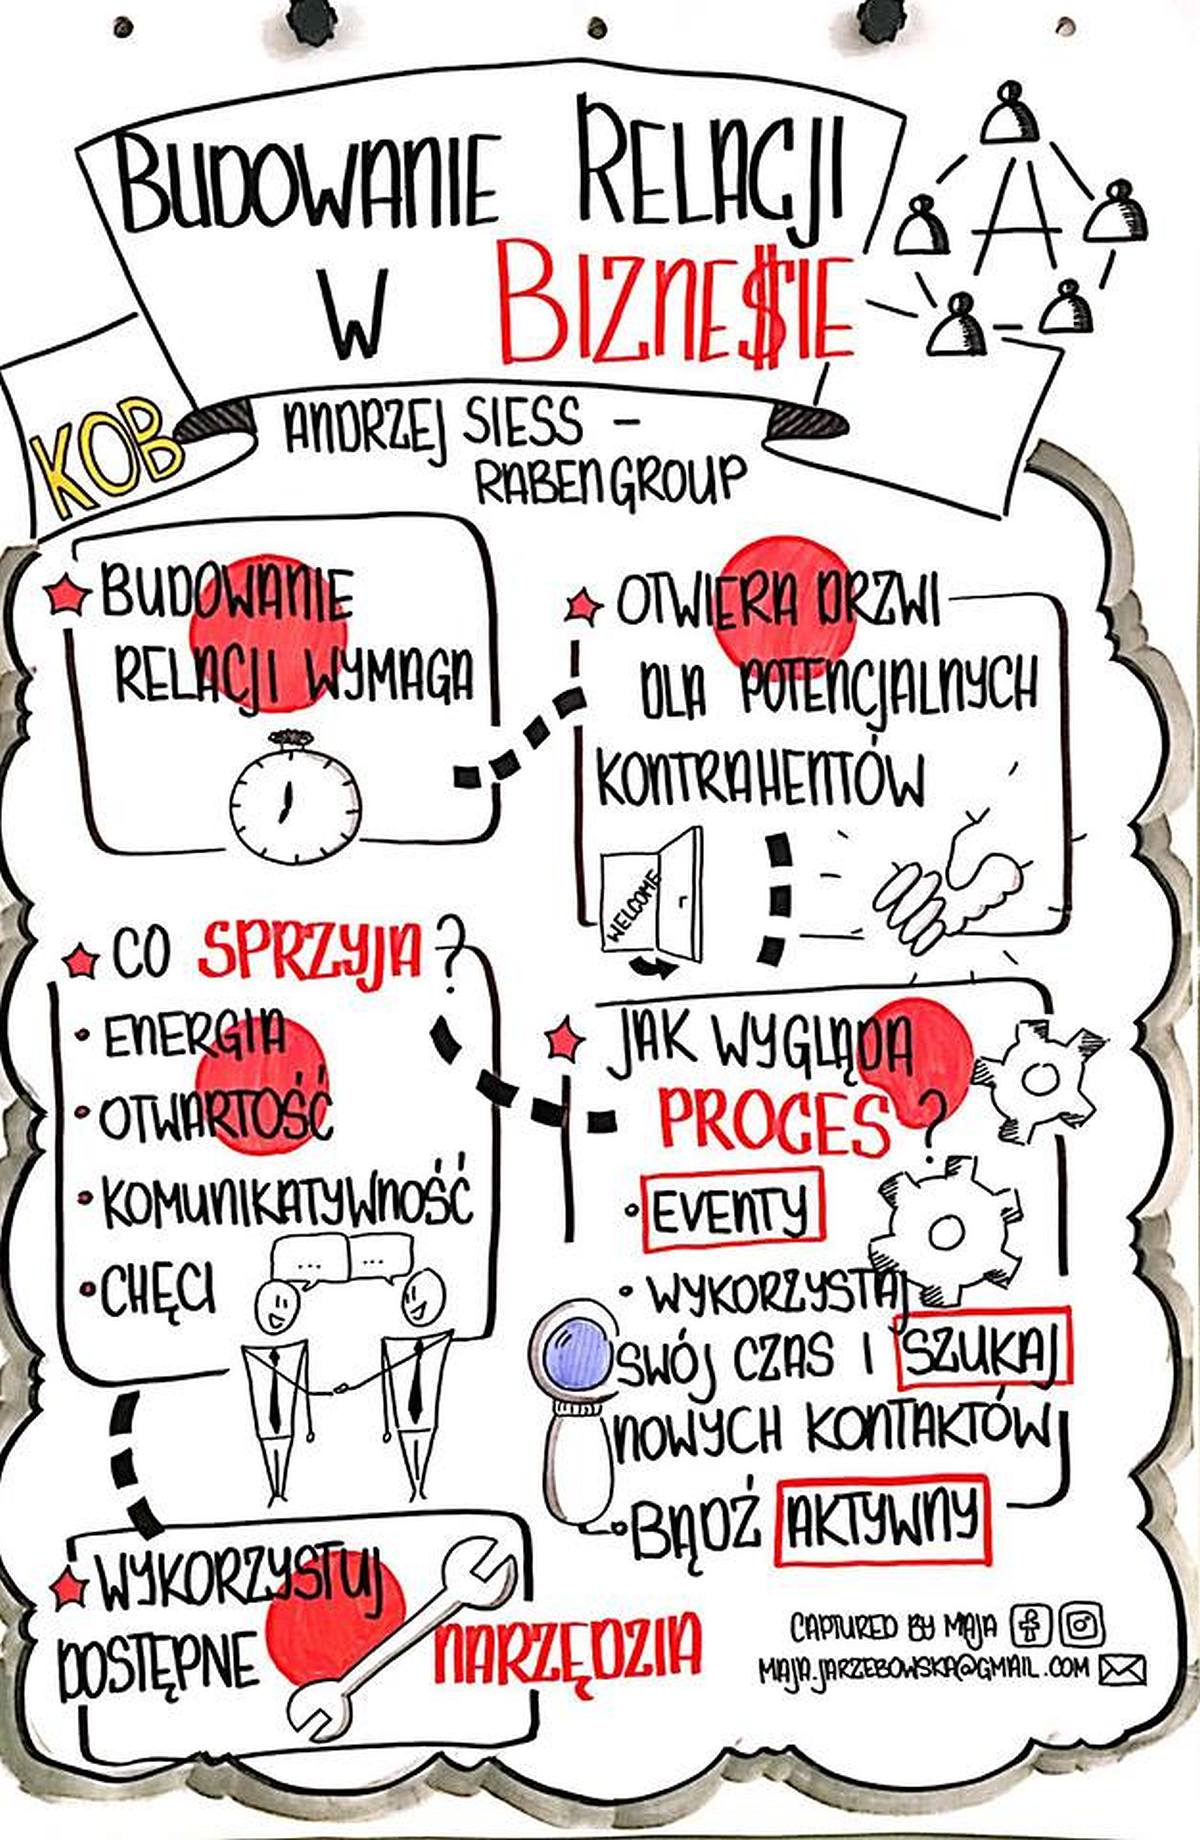 BUDOWANIE RELACJI
W BIZNE$IE
KOB
ANDRZEJ SIESS -
RABEN GROUP
BUDOWANIE
RELACJI WYMAGA
OTWIERA DRZWI
DLA POTENCJALNYCH
KONTRAHENTÓW
WELCOME
CO SPRZYJA?
• ENERGIA
• OTWARTOŚĆ
• KOMUNIKATYWNOŚĆ
• CHĘCI
...
...
JAK WYGLĄDA
PROCES?
• EVENTY
• WYKORZYSTAJ
SWÓJ CZAS I SZUKAJ
NOWYCH KONTAKTÓW
• BĄDŹ AKTYWNY
WYKORZYSTUJ
DOSTĘPNE NARZĘDZIA
CAPTURED BY MAJA
MAJA.JARZEBOWSKA@GMAIL.COM